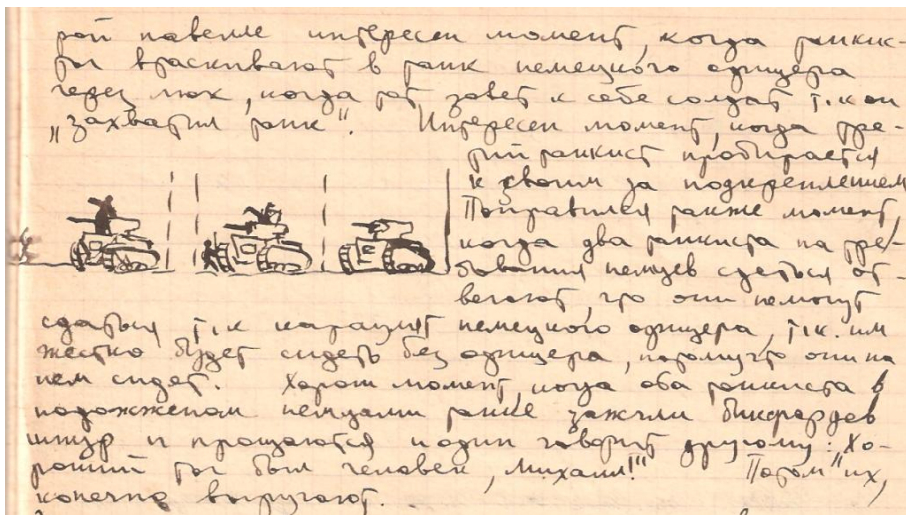 рой новелле интересен момент, когда танкис-
ты втаскивают в танк немецкого офицера
через люк, когда тот зовет к себе солдат т.к он
„захватил танк". Интересен момент, когда тре-
тий танкист пробирается
к своим за подкреплением
Понравился также момент,
когда два танкиста на тре-
бования немцев сдаться от-
вечают, что они немогут
сдаться т.к караулят немецкого офицера, т.к. им
жестко будет сидеть без офицера, потомучто они на
нем сидят. Хорош момент, когда оба танкиста в
подожженом немцами танке зажгли бикфордев
шнур и прощаются и один говорит другому: „Хо-
роший ты был человек, Михаил!" Потом их,
конечно выручают.